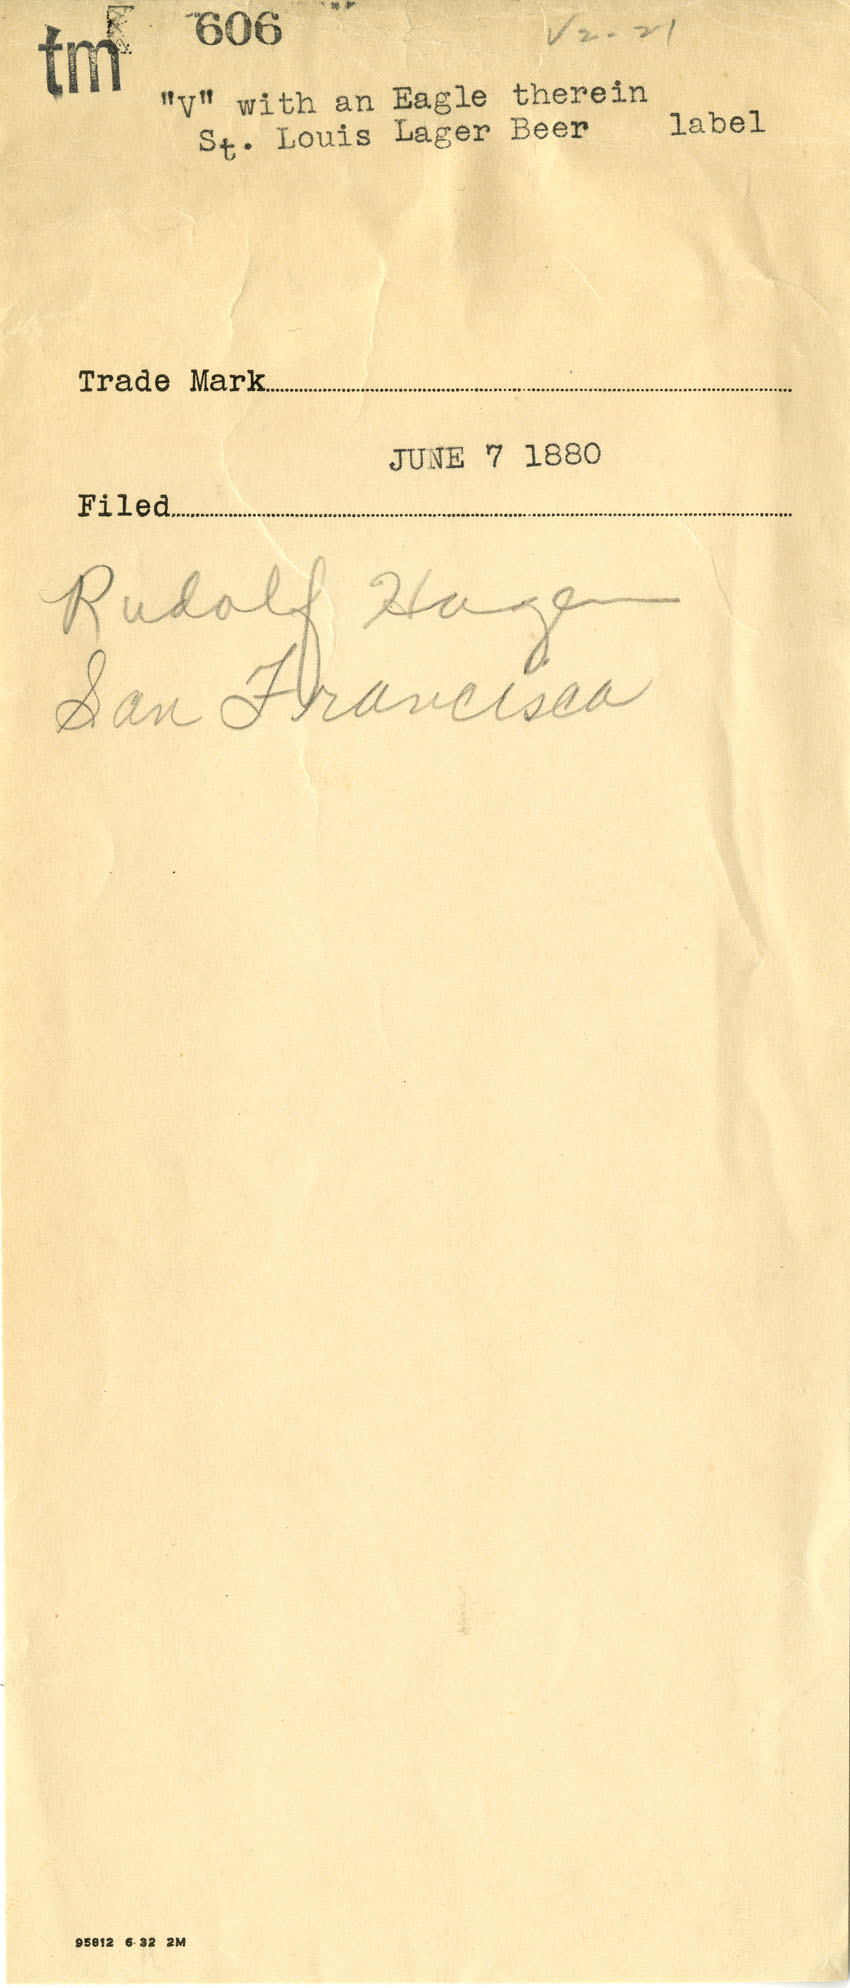 tm 606 V2-21
"V" with an Eagle therein
St. Louis Lager Beer label
Trade Mark
JUNE 7 1880
Filed
Rudolf Hagen
San Francisco
95812 6-32 2M